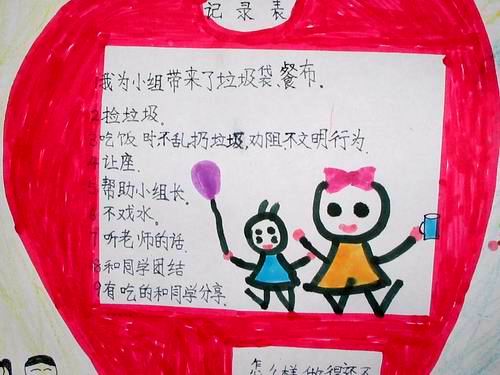 记录表
1我为小组带来了垃圾袋、餐布.
2捡垃圾.
3吃饭时不乱扔垃圾,劝阻不文明行为.
4让座.
5帮助小组长.
6不戏水.
7听老师的话.
8和同学团结
9有吃的和同学分享.
怎么样做得还不